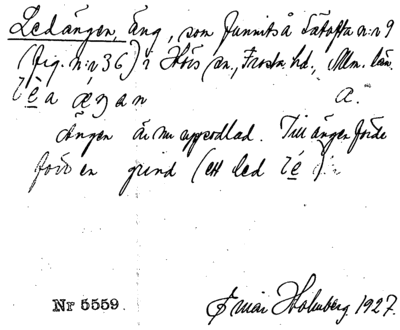 Ledängen, äng, som funnits å Tåtofta n:r 9
(fig. n:r 36) i Hörs sn., Frosta hd., Mlm. län.
a.
Ängen är nu uppodlad. Till ängen förde
förr en grind (ett led
Nr 5559. Einar Holmberg. 1927.